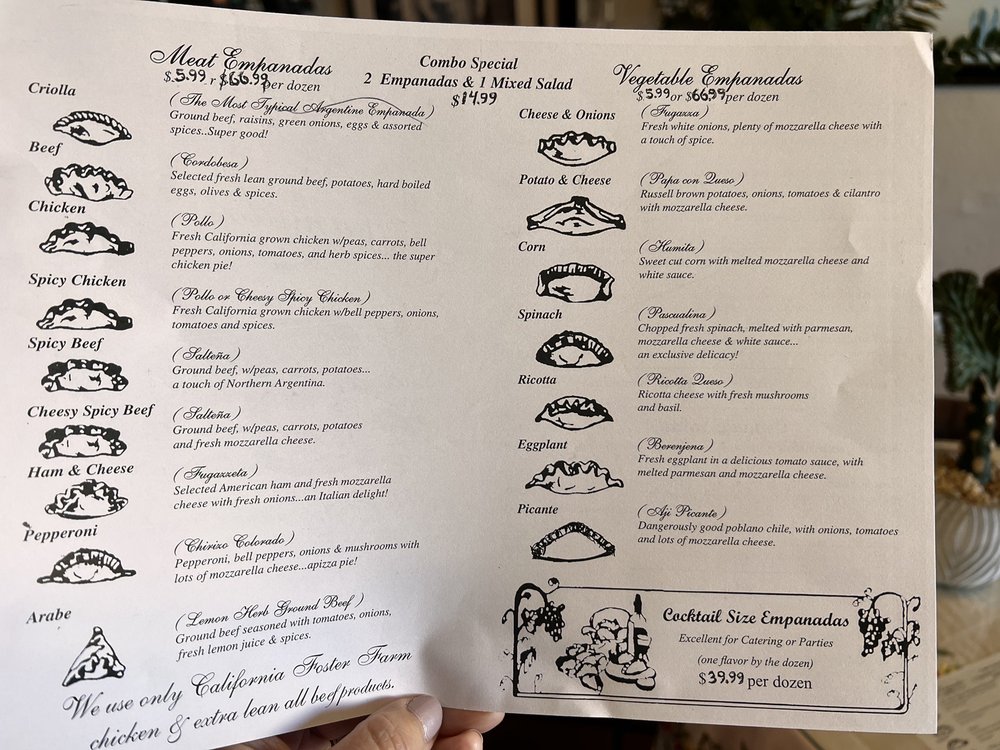 Meat Empanadas
$5.99 r $66.99 per dozen
Criolla
(The Most Typical Argentine Empanada)
Ground beef, raisins, green onions, eggs & assorted
spices..Super good!
Beef
(Cordobesa)
Selected fresh lean ground beef, potatoes, hard boiled
eggs, olives & spices.
Chicken
(Pollo)
Fresh California grown chicken w/peas, carrots, bell
peppers, onions, tomatoes, and herb spices... the super
chicken pie!
Spicy Chicken
(Pollo or Cheesy Spicy Chicken)
Fresh California grown chicken w/bell peppers, onions,
tomatoes and spices.
Spicy Beef
(Salteña)
Ground beef, w/peas, carrots, potatoes...
a touch of Northern Argentina.
Cheesy Spicy Beef
(Salteña)
Ground beef, w/peas, carrots, potatoes
and fresh mozzarella cheese.
Ham & Cheese
(Fugazzeta)
Selected American ham and fresh mozzarella
cheese with fresh onions...an Italian delight!
Pepperoni
(Chirizo Colorado)
Pepperoni, bell peppers, onions & mushrooms with
lots of mozzarella cheese...apizza pie!
Arabe
(Lemon Herb Ground Beef)
Ground beef seasoned with tomatoes, onions,
fresh lemon juice & spices.
We use only California Foster Farm
chicken & extra lean all beef products.
Combo Special
2 Empanadas & 1 Mixed Salad
$14.99
Vegetable Empanadas
$5.99 or $66.99 per dozen
Cheese & Onions
(Fugazza)
Fresh white onions, plenty of mozzarella cheese with
a touch of spice.
Potato & Cheese
(Papa con Queso)
Russell brown potatoes, onions, tomatoes & cilantro
with mozzarella cheese.
Corn
(Humita)
Sweet cut corn with melted mozzarella cheese and
white sauce.
Spinach
(Pascualina)
Chopped fresh spinach, melted with parmesan,
mozzarella cheese & white sauce...
an exclusive delicacy!
Ricotta
(Ricotta Queso)
Ricotta cheese with fresh mushrooms
and basil.
Eggplant
(Berenjena)
Fresh eggplant in a delicious tomato sauce, with
melted parmesan and mozzarella cheese.
Picante
(Aji Picante)
Dangerously good poblano chile, with onions, tomatoes
and lots of mozzarella cheese.
Cocktail Size Empanadas
Excellent for Catering or Parties
(one flavor by the dozen)
$39.99 per dozen